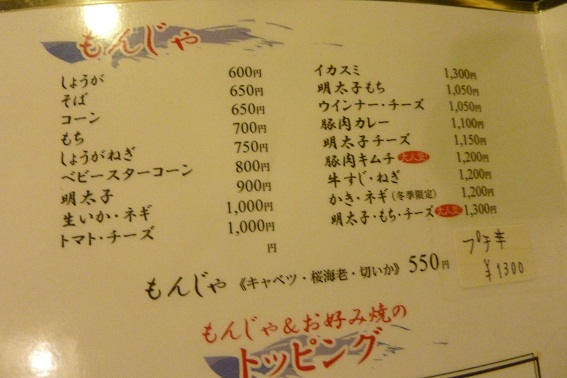 もんじゃ
しょうが 600円
そば 650円
コーン 650円
もち 700円
しょうがねぎ 750円
ベビースターコーン 800円
明太子 900円
生いか・ネギ 1,000円
トマト・チーズ 1,000円
円
イカスミ 1,300円
明太子もち 1,050円
ウインナー・チーズ 1,050円
豚肉カレー 1,100円
明太子チーズ 1,150円
豚肉キムチ 大人気 1,200円
牛すじ・ねぎ 1,200円
かき・ネギ(冬季限定) 1,200円
明太子・もち・チーズ 大人気 1,300円
もんじゃ 《キャベツ・桜海老・切いか》 550円
プチ辛
¥1300
もんじゃ&お好み焼の
トッピング